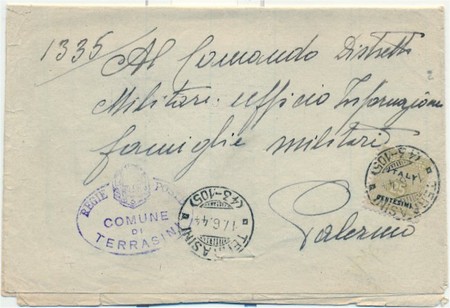 1335/
Al Comando Distretti
Militare ufficio Informazione
famiglie militari
Palermo
REGIE POSTE
COMUNE
DI
TERRASINI
TERRASINI
(43-105)
17.6.44
TERRASINI
(43-105)